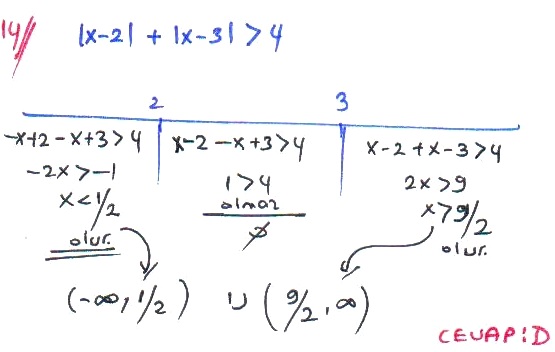 14/ |x-2| + |x-3| > 4
2 3
-x+2-x+3>4 x-2-x+3>4 x-2+x-3>4
-2x>-1 1>4 2x>9
x<1/2 olmaz x>9/2
olur. ∅ olur.
(-∞, 1/2) ∪ (9/2, ∞)
CEVAP:D